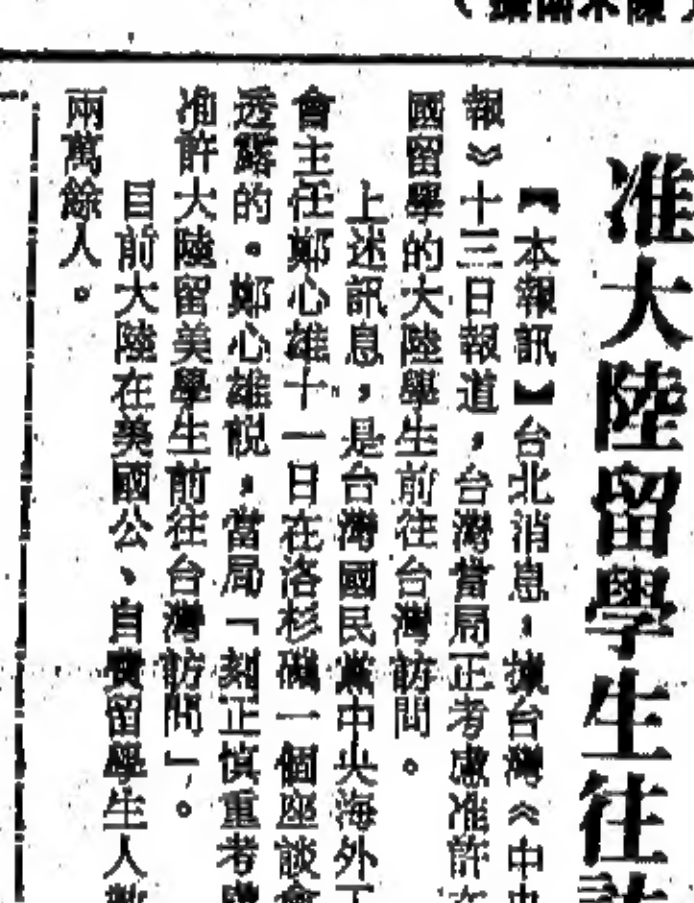 准大陸留學生往訪
【本報訊】台北消息，據台灣《中央
報》十三日報道，台灣當局正考慮准許在
國留學的大陸學生前往台灣訪問。
上述訊息，是台灣國民黨中央海外工
會主任鄭心雄十一日在洛杉磯一個座談會
透露的。鄭心雄說，當局「刻正慎重考
准許大陸留美學生前往台灣訪問」。
目前大陸在美國公、自費留學生人數
兩萬餘人。